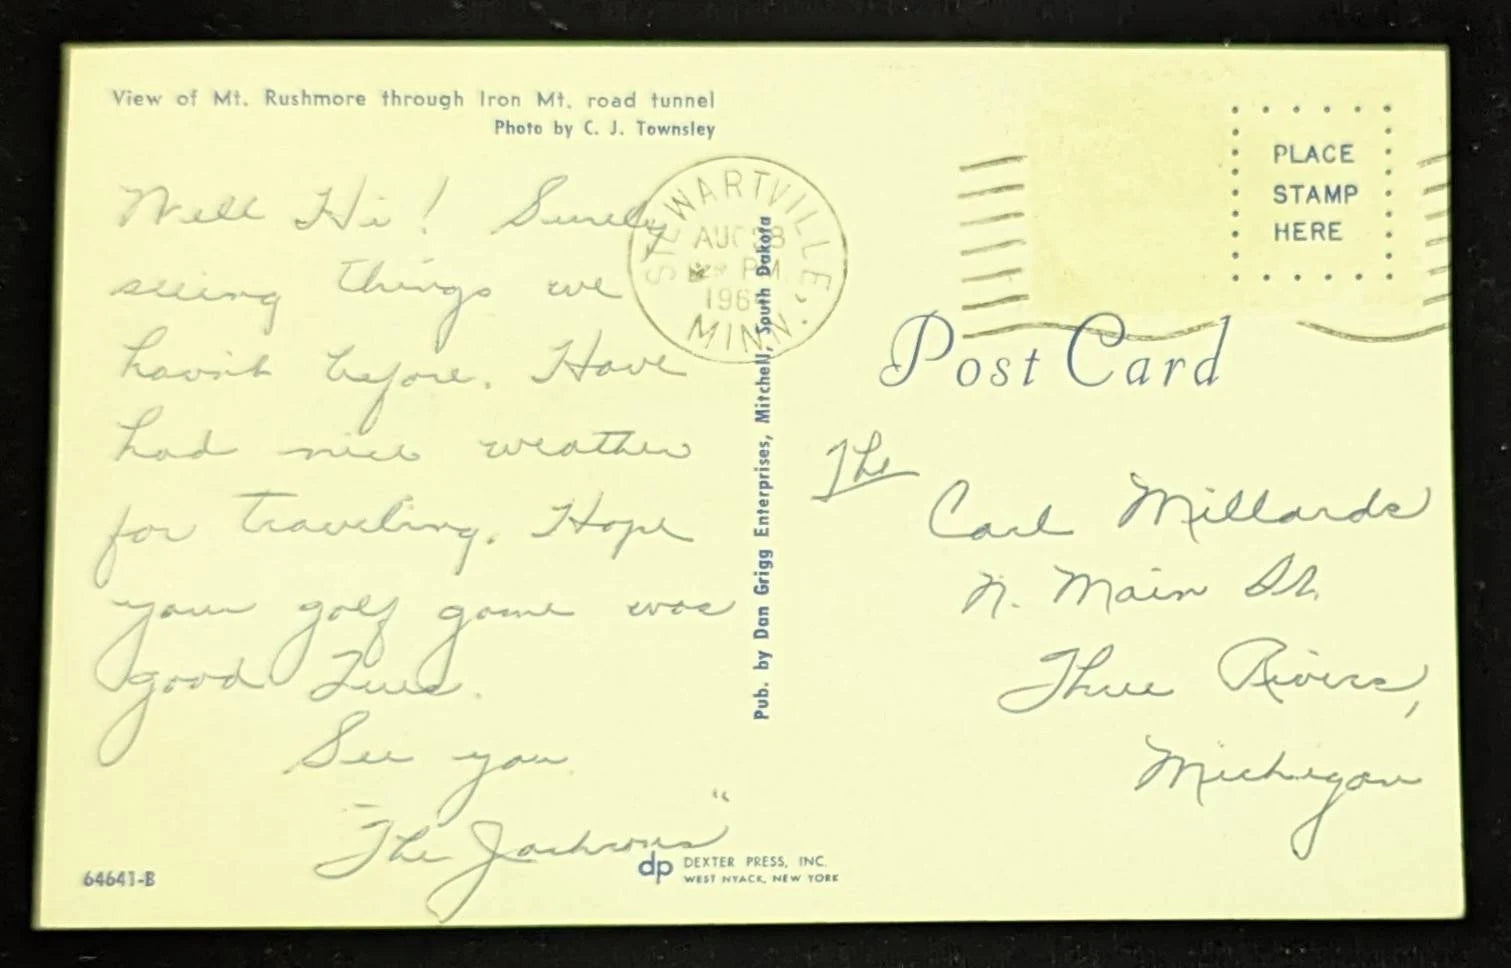 View of Mt. Rushmore through Iron Mt. road tunnel
Photo by C. J. Townsley
Well Hi! Surely
seeing things we
havn't before. Have
had nice weather
for traveling. Hope
your golf game was
good Tues.
See you
"The Jacksons"
64641-B
dp DEXTER PRESS, INC.
WEST NYACK, NEW YORK
Pub. by Dan Grigg Enterprises, Mitchell, South Dakota
STEWARTVILLE,
AUG 28
PM
196
MINN.
PLACE
STAMP
HERE
Post Card
The
Carl Millards
N. Main St.
Three Rivers,
Michigan